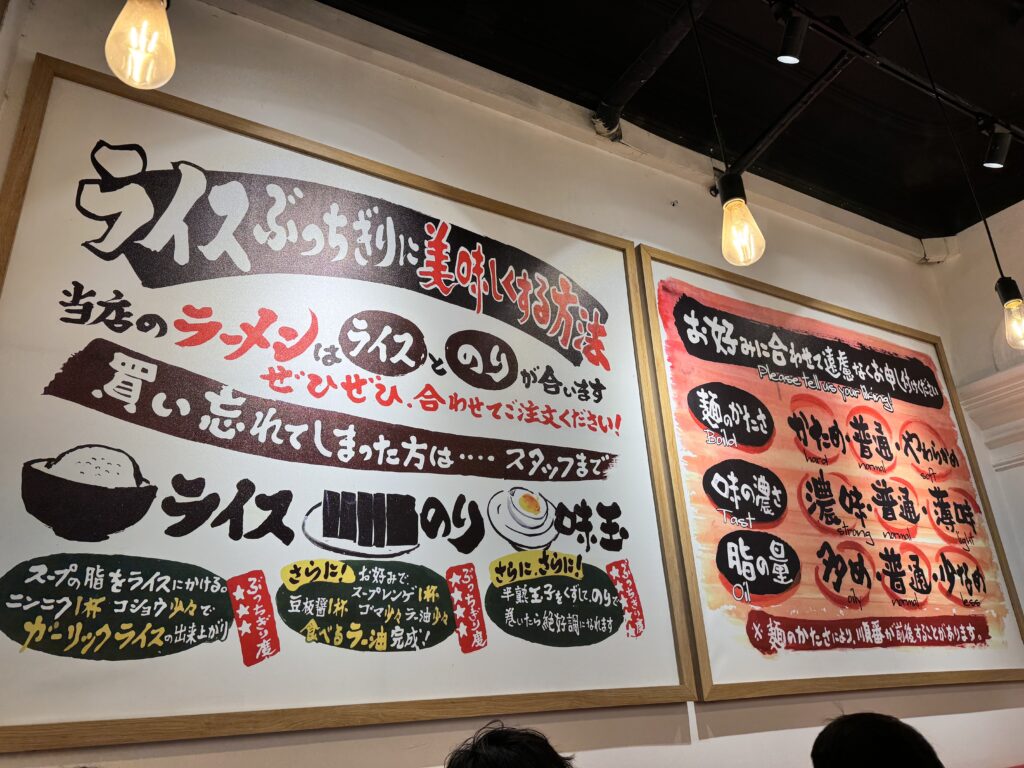 ライスぶっちぎりに美味しくする方法
当店のラーメンはライスとのりが合います
ぜひぜひ、合わせてご注文ください!
買い忘れてしまった方は‥‥‥スタッフまで
ライス のり 味玉
スープの脂をライスにかける。
ニンニク1杯 コショウ少々で
ガーリックライスの出来上がり
ぶっちぎり度
★
さらに!
お好みで、
スープレンゲ1杯
豆板醤1杯 ゴマ少々 ラー油少々
食べるラー油完成!
ぶっちぎり度
★★
さらに、さらに!
半熟玉子をくずして、のりで
巻いたら絶好調になれます
ぶっちぎり度
★★★
お好みに合わせて遠慮なくお申し付けください
Please tell us your liking!
麺のかたさ かため・普通・やわらかめ
Boild hard normal soft
味の濃さ 濃味・普通・薄味
Tast strong normal light
脂の量 多め・普通・少なめ
Oil oily normal less
※麺のかたさにより、順番が前後することがあります。